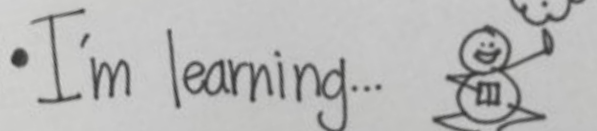 • I'm learning...